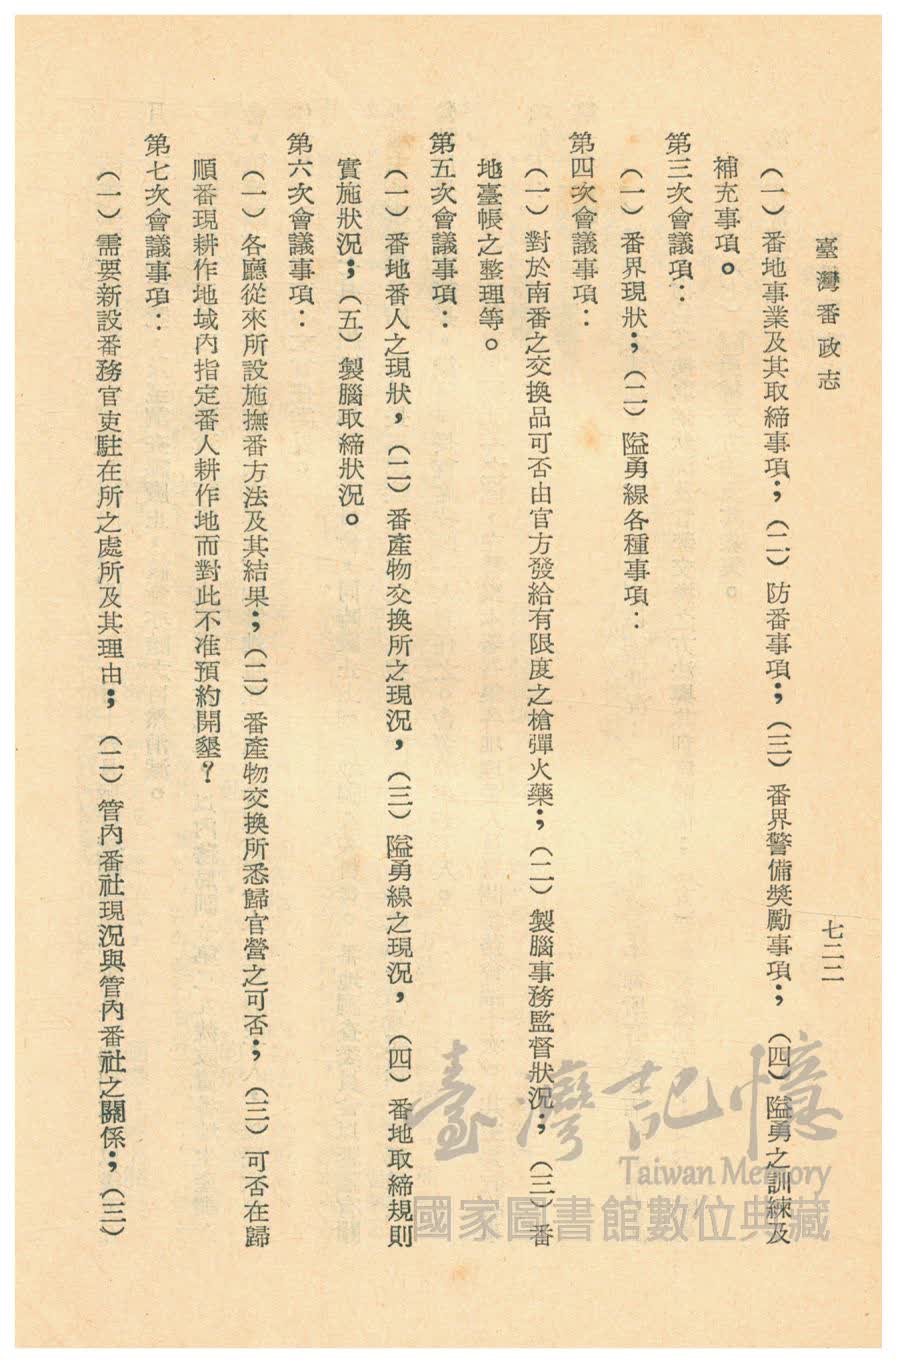 臺灣番政志
七二二
（一）番地事業及其取締事項；（二）防番事項；（三）番界警備獎勵事項；（四）隘勇之訓練及
補充事項。
第三次會議事項：
（一）番界現狀；（二）隘勇線各種事項：
第四次會議事項：
（一）對於南番之交換品可否由官方發給有限度之槍彈火藥；（二）製腦事務監督狀況；（三）番
地臺帳之整理等。
第五次會議事項：
（一）番地番人之現狀，（二）番產物交換所之現況，（三）隘勇線之現況，（四）番地取締規則
實施狀況；（五）製腦取締狀況。
第六次會議事項：
（一）各廳從來所設施撫番方法及其結果；（二）番產物交換所悉歸官營之可否；（三）可否在歸
順番現耕作地域內指定番人耕作地而對此不准預約開墾？
第七次會議事項：
（一）需要新設番務官吏駐在所之處所及其理由；（二）管內番社現況與管內番社之關係；（三）
臺灣記憶
Taiwan Memory
國家圖書館數位典藏